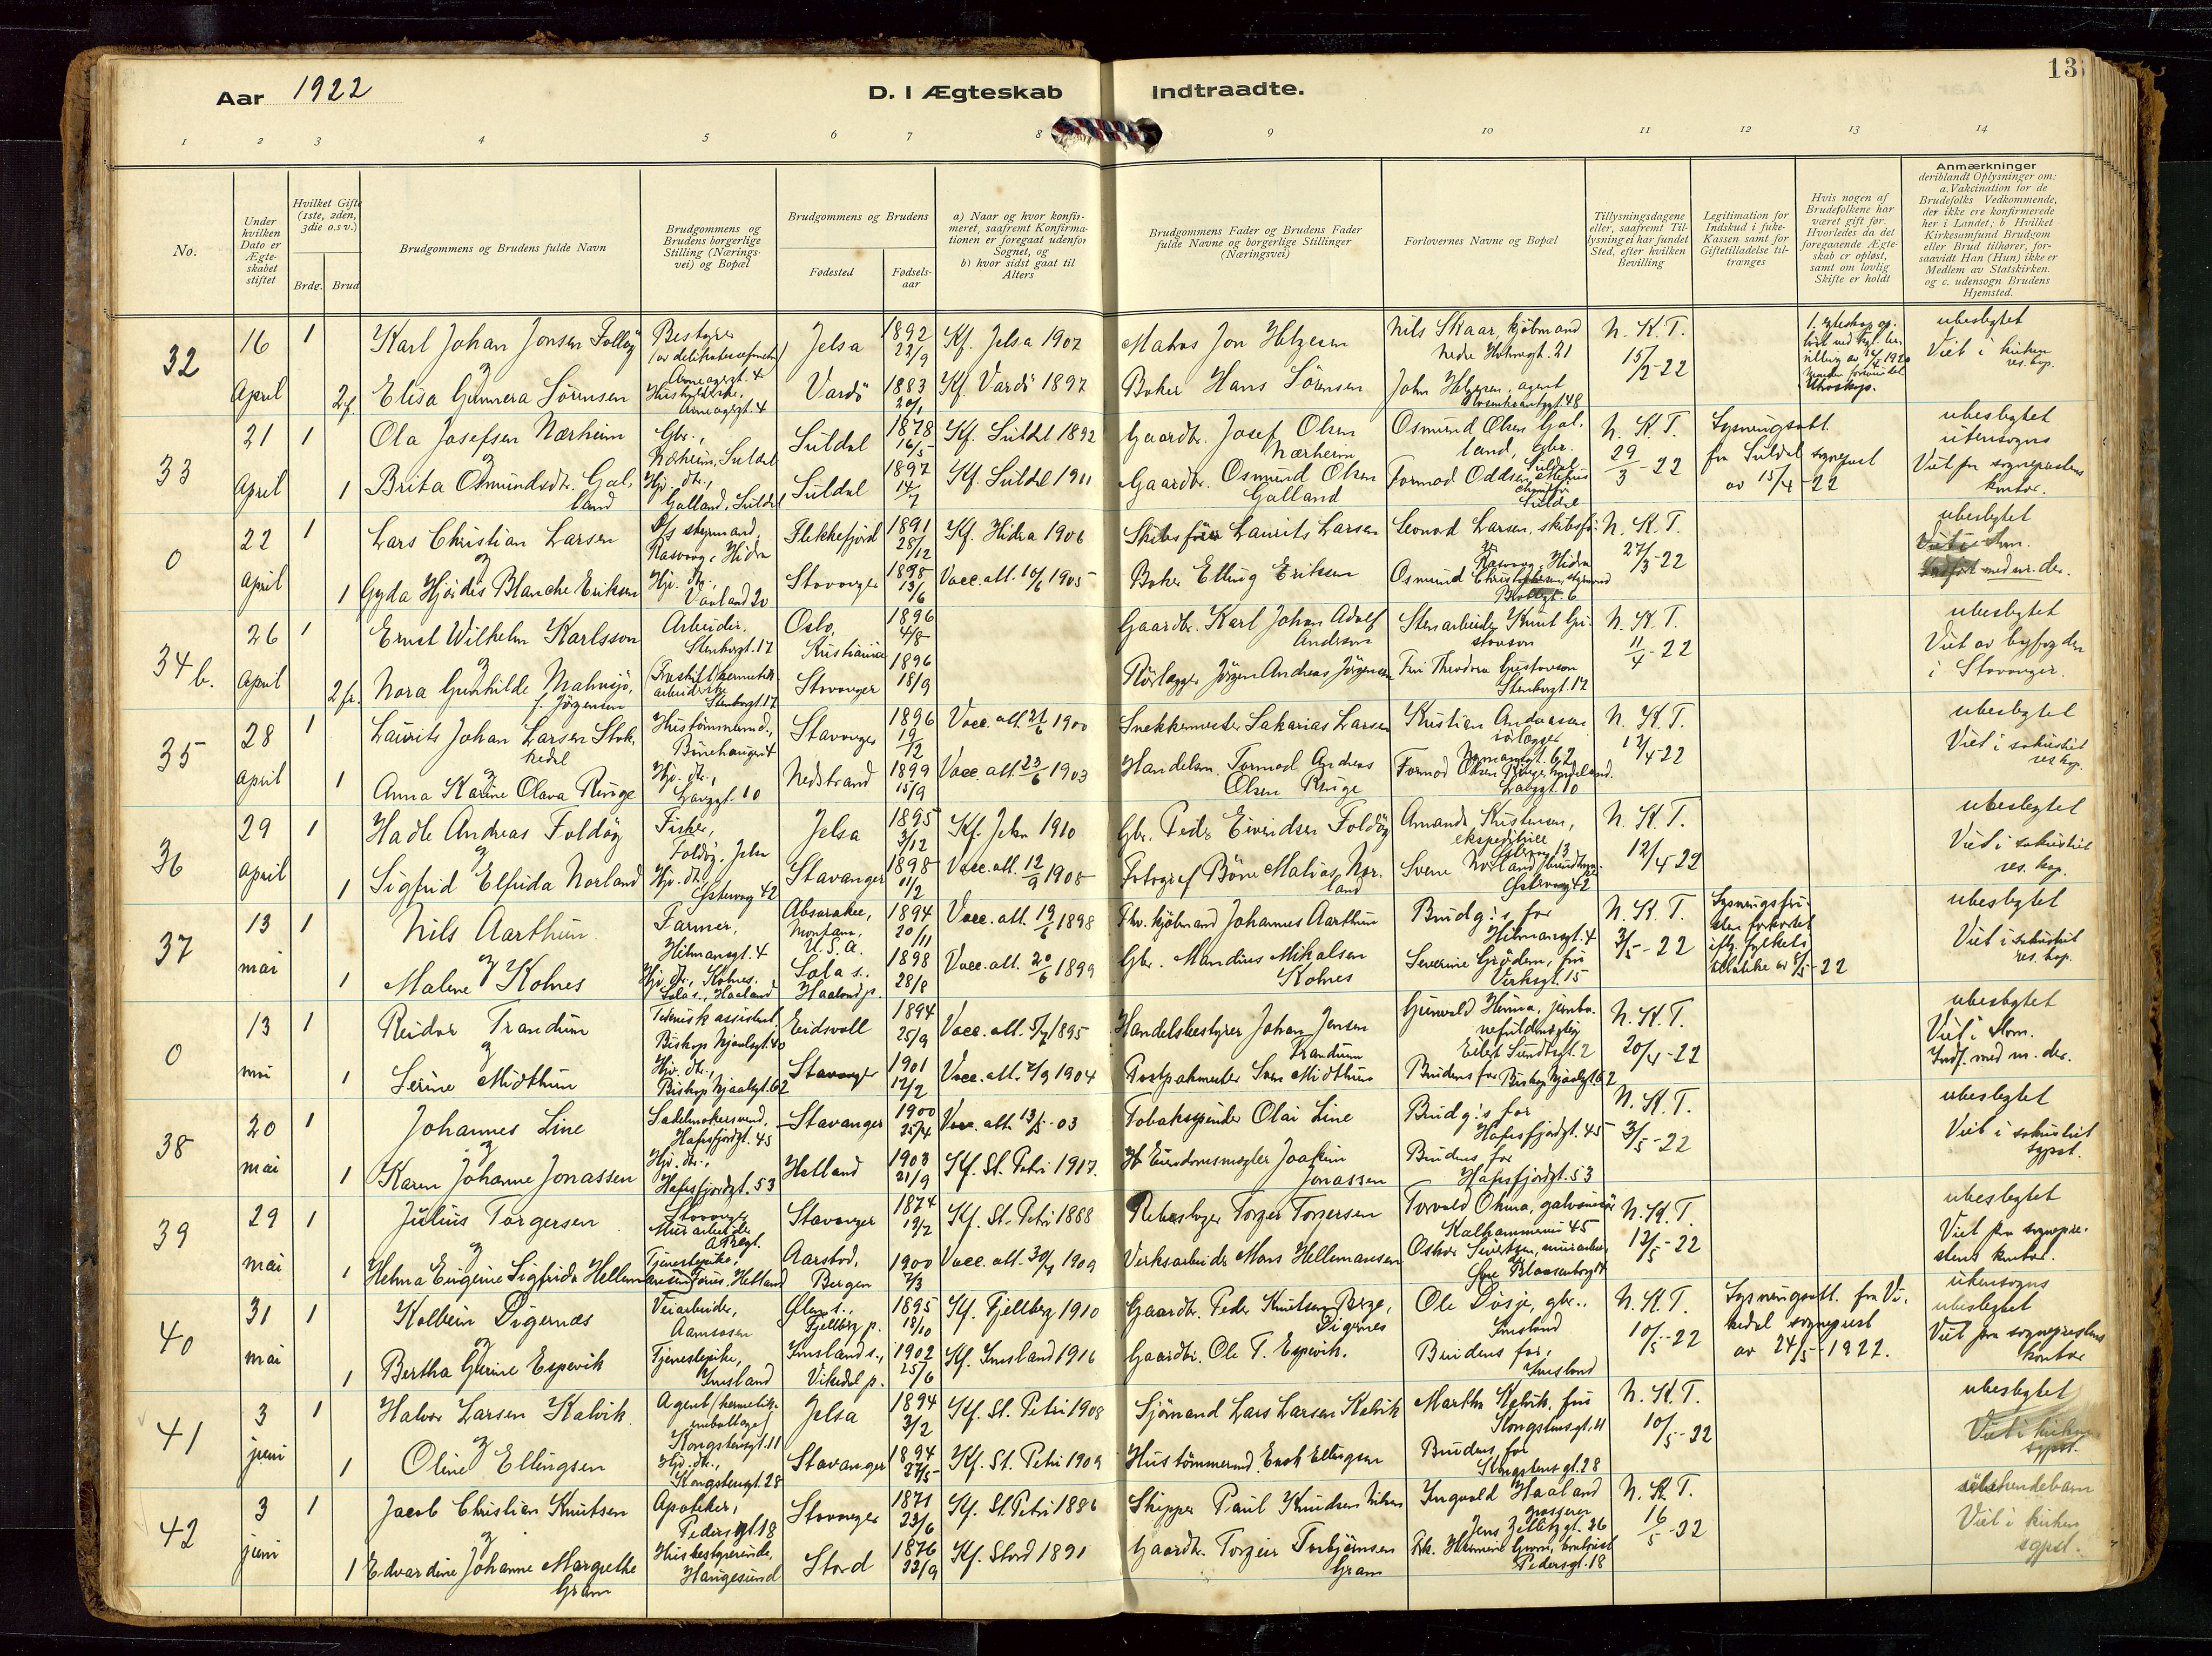 Aar 1922
D. I Ægteskab Indtraadte.
13
1 2 3 4 5 6 7 8 9 10 11 12 13 14
No.
Under hvilken Dato er Ægteskabet stiftet
Hvilket Gifte (1ste, 2den, 3die o.s.v.)
Brdg. Brud
Brudgommens og Brudens fulde Navn
Brudgommens og Brudens borgerlige Stilling (Næringsvei) og Bopæl
Brudgommens og Brudens
Fødested
Fødselsaar
a) Naar og hvor konfirmeret, saafremt Konfirmationen er foregaaet udenfor Sognet, og
b) hvor sidst gaat til Alters
Brudgommens Fader og Brudens Fader fulde Navne og borgerlige Stillinger (Næringsvei)
Forlovernes Navne og Bopæl
Tillysningsdagene eller, saafremt Tillysning ei har fundet Sted, efter hvilken Bevilling
Legitimation for Indskud i fuke-Kassen samt for Giftetilladelse tiltrænges
Hvis nogen af Brudefolkene har været gift før. Hvorledes da det foregaaende Ægteskab er opløst, samt om lovlig Skifte er holdt
Anmærkninger
deriblandt Oplysninger om: a. Vakcination for de Brudefolks Vedkommende, der ikke ere konfirmerede her i Landet; b Hvilket Kirkesamfund Brudgom eller Brud tilhører, forsaavidt Han (Hun) ikke er Medlem av Statskirken. og c. udensogn Brudens Hjemsted.
32
16 April
1
Karl Johan Jonsen Foldöy
Bestyrer
Jelsa
1892 22/9
Kf. Jelsa 1907
Matros Jon Helgesen
Nils Skaar, kjöbmand
Nedre Holmegt. 21
N. K. T.
15/2-22
ubeslegtet
Viet i kirken
res. kap.
2 f.
Elisa Gunnera Sörensen
Arneagergt. 4
Vardö
1883 20/1
Kf. Vardö 1897
Baker Hans Sörensen
John Helgesen, agent
Rosenkrantzgt. 48
33
21 April
1
Ola Josefsen Nærheim
Gbr.,
Nærheim, Suldal
Suldal
1878 16/5
Kf. Suldal 1892
Gaardbr. Josef Olsen
Nærheim
Osmund Olsen Galland, gbr.
Suldal
N. K. T.
29/3-22
Lysningsatt.
fra Suldal sogneprest
av 15/4-22
ubeslegtet
utensogns
Viet paa sogneprestens
kontor.
1
Brita Osmundsdtr. Galland
Hj. dtr.,
Galland, Suldal
Suldal
1897 14/7
Kf. Suldal 1911
Gaardbr. Osmund Olsen
Galland
0
22 April
1
Lars Christian Larsen
D/s styrmand,
Rasvaag, Hidra
Flekkefjord
1891 28/12
Kf. Hidra 1906
Skibsförer Laurits Larsen
Leonard Larsen, skibsför.
Rasvaag, Hidra
N. K. T.
27/3-22
ubeslegtet
Viet i dom.
1
Gyda Hjördis Blanche Eriksen
Hj. dtr.,
Vaaland 20
Stavanger
1898 13/6
Vacc. att. 10/6 1905
Baker Elling Eriksen
Osmund Christophersen, styrmand
34 b.
26 April
1
Ernst Wilhelm Karlsson
Arbeider.
Stenbergt. 17
Oslo,
Kristiania
1896 4/8
Gaardbr. Karl Johan Adolf
Anderson
Stenarbeider Knut Gustavson
N. K. T.
11/4-22
ubeslegtet
Viet av byfogden
i Stavanger.
2 fr.
Nora Gunhilde Malmsjö,
f. Jörgensen
(Fraskilt) hermetikarbeiderske
Stenbergt. 17
Stavanger
1896 18/9
Rörlægger Jörgen Andreas Jörgensen
Fru Theodora Gustavson
Stenbergt. 17
35
28 April
1
Laurits Johan Larsen Stokkedal
Hustömmermd.,
Stavanger
1896 19/12
Vacc. att. 21/6 1900
Snekkermester Sakarias Larsen
Kristian Andreasen
rörlægger
N. K. T.
12/4-22
ubeslegtet
Viet i sakristiet
res. kap.
1
Anna Karine Olava Ringe
Hj. dtr.,
Nedstrand
1899 15/9
Vacc. att. 23/6 1903
Handelsm. Tormod Andreas
Olsen Ringe
36
29 April
1
Hadle Andreas Foldöy
Fisker,
Foldöy, Jelsa
Jelsa
1895 3/12
Kf. Jelsa 1910
Gbr. Peder Eivindsen Foldöy
Amanda Kristensen,
ekspeditrice
N. K. T.
12/4-22
ubeslegtet
Viet i sakristiet
res. kap.
1
Sigfrid Elfrida Norland
Hj. dtr.,
Östervag 42
Stavanger
1898 11/2
Vacc. att. 12/9 1905
Fotograf Böre Matias Norland
Östervag 42
37
13 mai
1
Nils Aarthun
Farmer,
Hetmansgt. 4
Absarakee,
Montana,
U. S. A.
1894 20/11
Vacc. att. 19/6 1898
Fhv. kjöbmand Johannes Aarthun
Brudg.s far
Hetmansgt. 4
N. K. T.
3/5-22
ubeslegtet
Viet i sakristiet
res. kap.
1
Malene Kolnes
Hj. dtr., Kolnes,
Sola s., Haaland
Sola s.
Haaland p.
1898 28/8
Vacc. att. 20/6 1899
Gbr. Mandius Mikalsen
Kolnes
Severine Grödem, fru
Verksgt. 15
0
13 mai
1
Reidar Trandum
Teknisk assistent,
Biskop Njaalsgt. 40
Eidsvoll
1894 25/9
Vacc. att. 5/7 1895
Handelsbestyrer Johan Jensen
Trandum
Eilert Sundtsgt. 2
N. K. T.
20/4-22
ubeslegtet
Viet i dom.
Indf. med nr. der.
1
Serine Midthun
Hj. dtr.,
Biskop Njaalsgt. 62
Stavanger
1901 12/2
Vacc. att. 2/9 1904
Postpakmester Sven Midthun
Brudens far Biskop Njaalsgt 62
38
20 mai
1
Johannes Line
Sadelmakersvend,
Hafrsfjordgt. 45
Stavanger
1900 25/4
Vacc. att. 13/5-03
Tobakspinder Olai Line
Brudg.s far
Hafrsfjordgt. 45
N. K. T.
3/5-22
ubeslegtet
Viet i sakristiet
sgpst.
1
Karen Johanne Jonassen
Hj. dtr.,
Hafrsfjordgt. 53
Hetland
1903 21/9
Kf. St. Petri 1917.
Eiendomsmægler Joakim
Jonassen
Brudens far
Hafrsfjordgt. 53
39
29 mai
1
Julius Torgersen
Stavanger
Murarbeider
Stavanger
1874 19/2
Kf. St. Petri 1888
Rebslager Torger Torgersen
Kalhammeren 45
N. K. T.
12/5-22
ubeslegtet
Viet paa sogneprestens kontor.
1
Helma Eugenie Sigfrida Hellemansen
Tjenestepike,
Forus, Hetland
Aarstad,
Bergen
1900 7/3
Vacc. att. 30/9 1909
Verksarbeider Mons Hellemansen
Oskar Sivertsen, murarbei.,
40
31 mai
1
Kolbein Digernes
Veiarbeider,
Aamsosen
Ølen s.,
Fjelberg p.
1895 18/10
Kf. Fjelberg 1910
Gaardbr. Peder Knutsen Berge,
Digernes
Ole Døsje, gbr.,
Imsland
N. K. T.
10/5-22
Lysningsatt. fra Vikedal sogneprest
av 24/5-1922.
utensogns
ubeslegtet
Viet paa sogneprestens
kontor
1
Bertha Gurine Espevik
Tjenestepike,
Imsland
Imsland s.,
Vikedal p.
1902 25/6
Kf. Imsland 1916
Gaardbr. Ole T. Espevik.
Brudens far,
Imsland
41
3 juni
1
Halvor Larsen Kalvik
Agent (hermetikemballage)
Kongstensgt. 11
Jelsa
1894 3/2
Kf. St. Petri 1908
Sjömand Lars Larsen Kalvik
Martha Kalvik, fru
Kongstensgt. 11
N. K. T.
10/5-22
ubeslegtet
Viet i kirken
sgpst.
1
Oline Ellingsen
Hj. dtr.,
Kongstensgt. 28
Stavanger
1894 27/5
Kf. St. Petri 1909
Hustömmermd. Enok Ellingsen
Brudens far
Kongstensgt. 28
42
3 juni
1
Jacob Christian Knutsen
Apoteker,
Pedersgt. 18
Stavanger
1871 23/6
Kf. St. Petri 1886
Skipper Paul Knudsen
Ingvald Haaland
grosserer
Jens Zetlitzgt. 26
N. K. T.
16/5-22
söskendebarn
Viet i kirken
sgpst.
1
Edvardine Johanne Margrethe
Gram
Husbestyrerinde,
Haugesund
Stord
1876 22/9
Kf. Stord 1891
Gaardbr. Torgeir Torbjörnsen
Gram
Pedersgt. 18